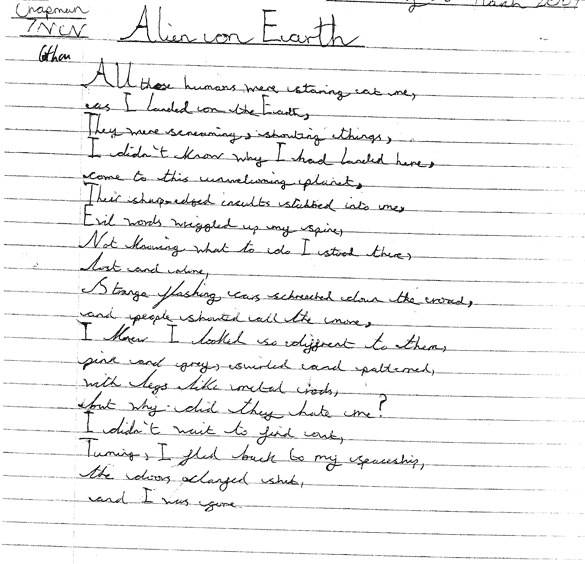 Chapman
7NCN
March 2001
Alien on Earth
All those humans were staring at me,
as I landed on the Earth,
They were screaming, shouting things,
I didn't know why I had landed here,
come to this unwelcoming planet,
Their sharp edged insults stabbed into me,
Evil words wriggled up my spine,
Not knowing what to do I stood there,
lost and alone,
Strange flashing cars screeched down the road,
and people shouted all the more,
I knew I looked so different to them,
pink and grey, swirled and patterned,
with legs like metal rods,
but why did they hate me?
I didn't wait to find out,
Turning, I fled back to my spaceship,
the doors clanged shut,
and I was gone.